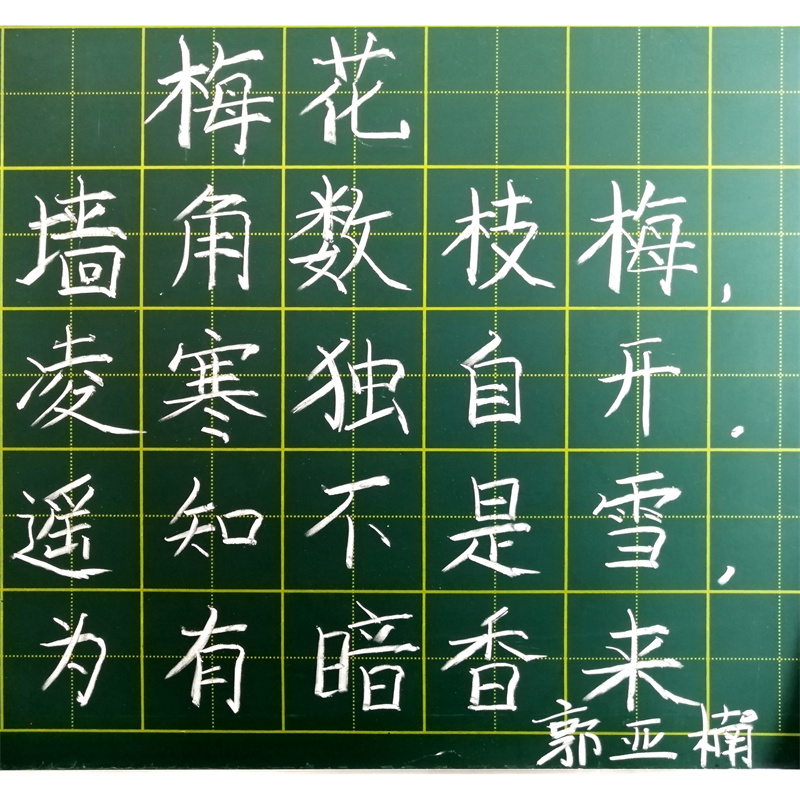 梅花
墙角数枝梅，
凌寒独自开.
遥知不是雪，
为有暗香来
郭亚楠